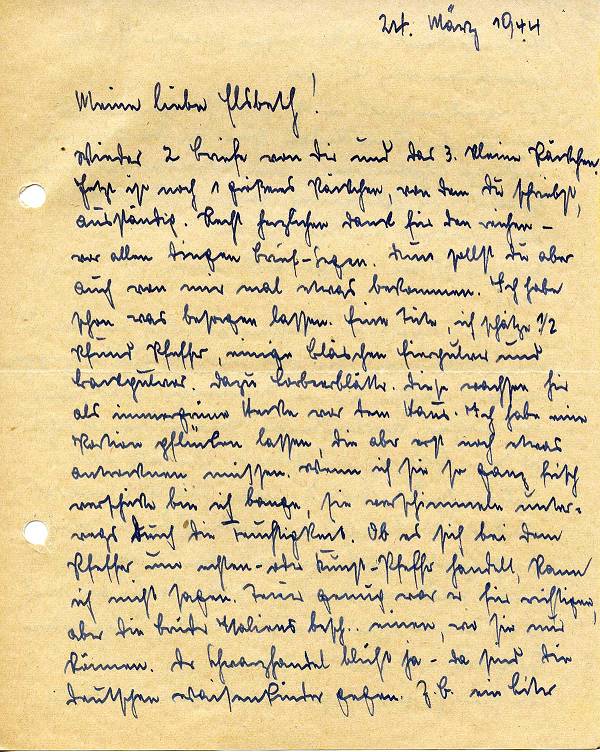 24. März 1944
Meine liebe Elsbeth!
Wieder 2 Briefe von dir und das 3. kleine Päckchen.
Jetzt ist noch 1 größeres Päckchen, von dem du schriebst,
ausständig. Recht herzlichen Dank für den reichen -
vor allen Dingen Brief-Segen. Nun sollst du aber
auch von mir mal etwas bekommen. Ich habe
schon was besorgen lassen. Eine Tüte, ich schätze 1/2
Pfund Pfeffer, einige Eierpulver und
Backpulver. Dazu Lorbeerblätter. Diese wachsen hier
als immergrüne Hecke vor dem Haus. Ich habe eine
Portion pflücken lassen, die aber erst noch etwas
antrocknen müssen. Wenn ich sie so ganz frisch
verschicke bin ich bange, sie verschimmeln unter-
wegs durch die Feuchtigkeit. Ob es sich bei dem
Pfeffer um echten- oder Kunst-Pfeffer handelt, kann
ich nicht sagen. Teuer genug war er für richtigen,
aber die Brüder Italiens besch.. einen, wo sie nur
können. Der Schwarzhandel blüht ja - da sind die
deutschen Waisenkinder gegen. Z.B. ein Liter